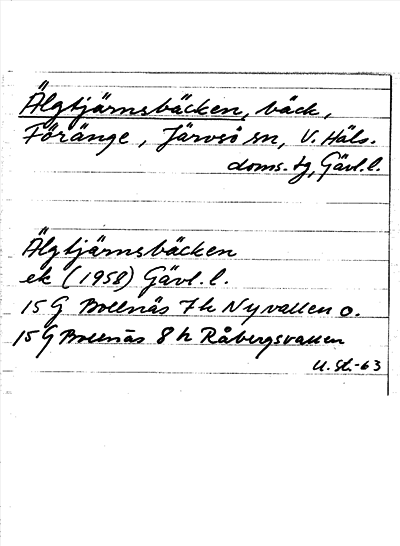 Älgtjärnsbäcken, bäck,
Föränge, Järvsö sn, V. Häls.
doms. tg, Gävl. l.
Älgtjärnsbäcken
ek (1958) Gävl. l.
15 G Bollnäs 7h Nyvallen o.
15 G Bollnäs 8h Råbergsvallen
U. St.-63